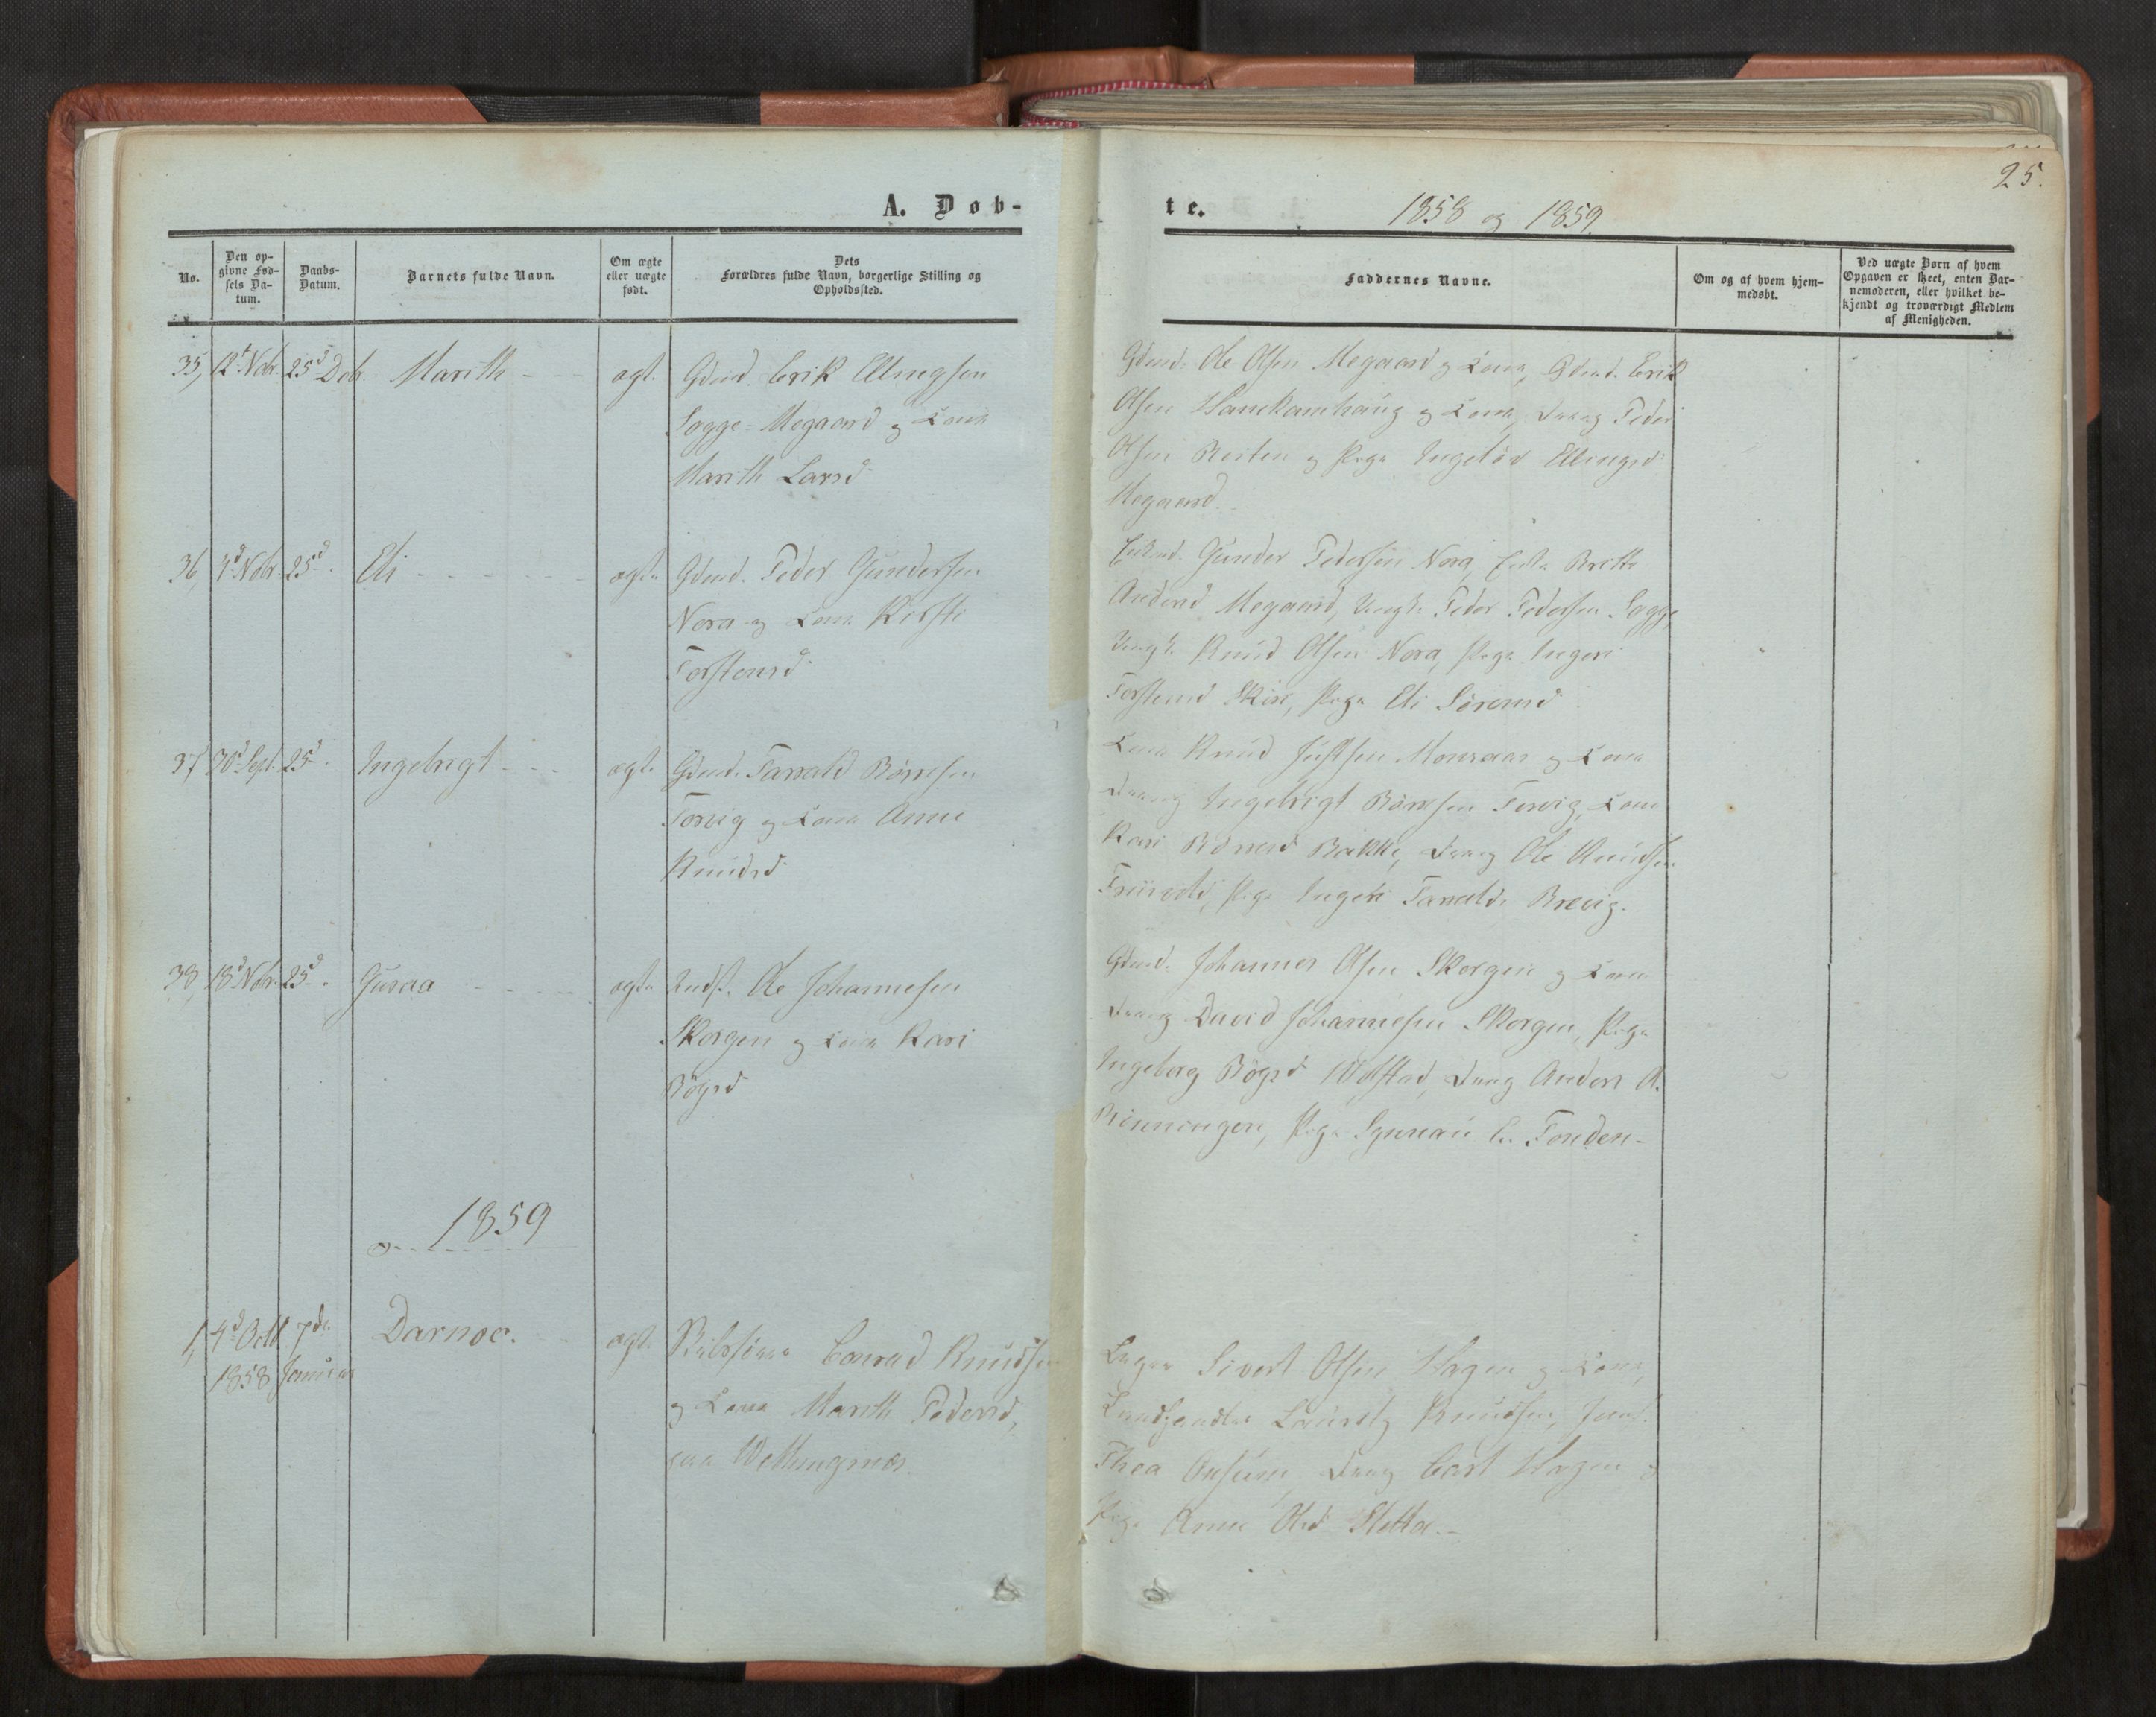 25.
A. Døb-
te.
1858 og 1859.
No.
Den op-
givne Fød-
sels Da-
tum.
Daabs-
Datum.
Barnets fulde Navn.
Om ægte
eller uægte
født.
Dets
Forældres fulde Navn, borgerlige Stilling og
Opholdssted.
Faddernes Navne.
Om og af hvem hjem-
medøbt.
Ved uægte Børn af hvem
Opgaven er skeet, enten Bar-
nemoderen, eller hvilket be-
kjendt og troværdigt Medlem
af Menigheden.
35, 12t Nobr. 25d Debr. Marith - - ægt. Gdmd. Erik Ellingsen
Sogge-Megaard og Kona
Marith Larsd
Gdmd. Ole Olsen Megaard og Kona, Gdmd. Erik
Olsen Hanekamhaug og Kona, Dreng Peder
Olsen Reiten og Pige Ingeløv Ellingsd
Megaard.
36, Nobr. 25d. Eli - - - - ægt. Gdmd. Peder Gundersen
Nora og Kona Kirsti
Torstensd
Gunder Pedersen Nora, Britte
Andersd Megaard, Ungk. Peder Pedersen Sogge,
Ungk. Knud Olsen Nora, Pige Ingeri
Torstensd Skiri, Pige Eli Sørensd
37, 30d Sept. 25d. Ingebrigt - - ægt. Gdmd. Tarrald Børresen
Torvig og Kona Anne
Knudsd
Knud Justsen Monsaas og Kona
Dreng Ingebrigt Børresen Torvig, Kone
Kari Børresd Bakke, Dreng Ole Knudsen
Pige Ingeri Tarralds Brevig.
38, 18d Nobr. 25d. Guraa - - - ægt. Indst. Ole Johannesen
Skorgen og Kona Kari
Bøgsd
Gdmd. Johannes Olsen Skorgen og Kona
Dreng David Johannesen Skorgen, Pige
Ingeborg Bøgsd Dreng Anders A.
Rønningen, Pige E. Tonden-
1859
1, 4d Octb. 7de Darnoc. ægt. Conrad Knudsen
1858 Januar
og Kona Marith Pedersd,
paa Wettungnæs.
Sivert Olsen Hagen og Kona,
Landhandler Lauretz Knudsen, Jomf.
Thea Dreng Carl Hagen og
Pige Anne Olsd Sletta.-